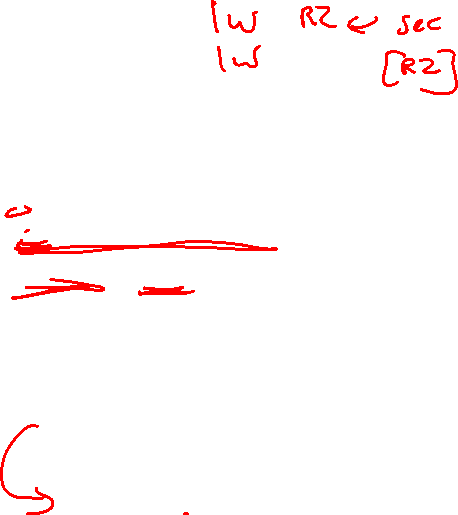 lw R2 ← sec
lw [R2]